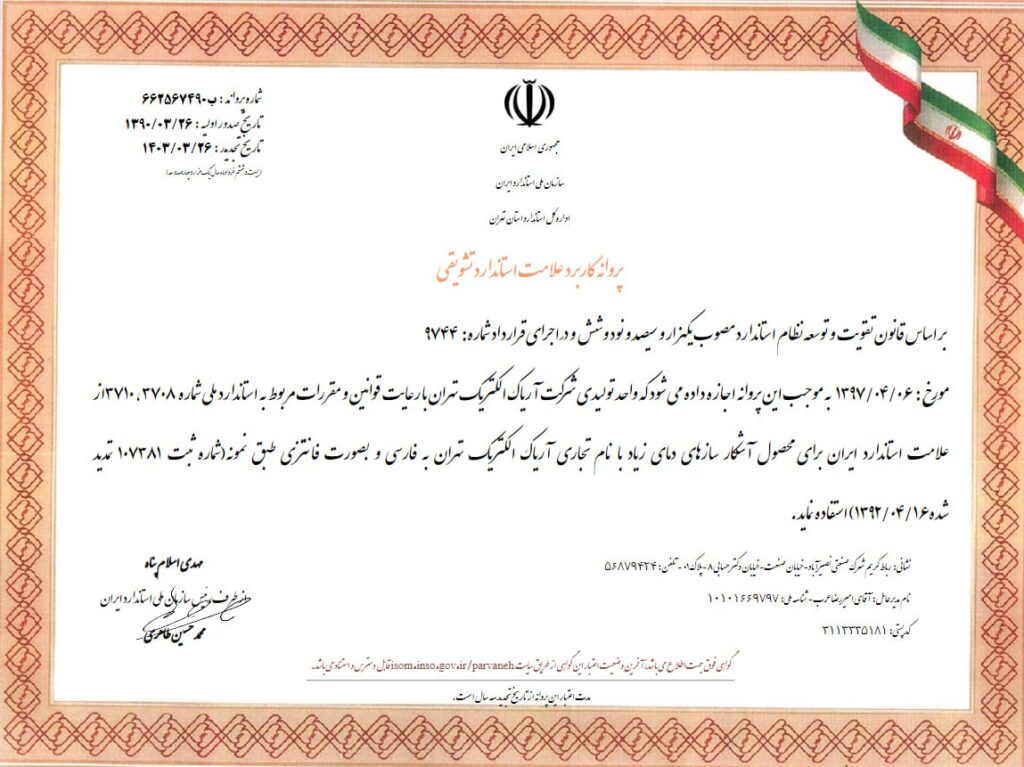 شماره پروانه : ب۶۶۲۵۶۷۴۹۰
تاریخ صدور اولیه : ۱۳۹۰/۰۳/۲۶
تاریخ تجدید : ۱۴۰۳/۰۳/۲۶
جمهوری اسلامی ایران
سازمان ملی استاندارد ایران
اداره کل استاندارد استان تهران
پروانه کاربرد علامت استاندارد تشویقی
بر اساس قانون تقویت و توسعه نظام استاندارد مصوب یکهزار و سیصد و نود و شش و در اجرای قرارداد شماره : ۹۷۴۴
مورخ : ۱۳۹۷/۰۴/۰۶ به موجب این پروانه اجازه داده می شود که واحد تولیدی شرکت آریاک الکتریک تهران با رعایت قوانین و مقررات مربوط به استاندارد ملی شماره ۳۷۰۸، ۳۷۱۰ از
علامت استاندارد ایران برای محصول آشکار سازهای دمای زیاد با نام تجاری آریاک الکتریک تهران به فارسی و بصورت فانتزی طبق نمونه(شماره ثبت ۱۰۷۳۸۱ تمدید
شده ۱۳۹۲/۰۴/۱۶) استفاده نماید.
نشانی : رباط کریم شهرک صنعتی نصیرآباد-خیابان صنعت-خیابان دکتر حسابی ۸-پلاک ۰۱-تلفن: ۵۶۸۷۹۴۲۴
نام مدیر عامل : آقای امیررضا عرب - شناسه ملی : ۱۰۱۰۱۶۶۹۷۹۷
کد پستی : ۳۱۱۳۳۳۵۱۸۱
مهدی اسلام پناه
از طرف رئیس سازمان ملی استاندارد ایران
محمد حسین طاهری
گواهی فوق جهت اطلاع می باشد، آخرین وضعیت اعتبار این گواهی از طریق سایت isom.inso.gov.ir/parvaneh قابل دسترس و استناد می باشد.
مدت اعتبار این پروانه از تاریخ تجدید سه سال است.